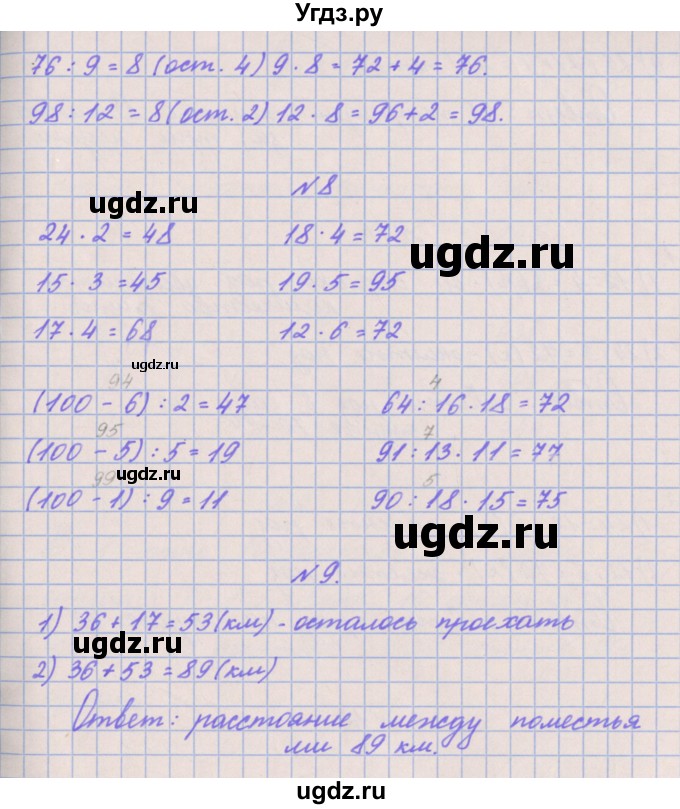 Угдз.ру
76 : 9 = 8 (ост. 4) 9 · 8 = 72 + 4 = 76.
98 : 12 = 8 (ост. 2) 12 · 8 = 96 + 2 = 98.
№8
ugdz.ru
24 · 2 = 48 18 · 4 = 72
ugdz.ru
15 · 3 = 45 19 · 5 = 95
17 · 4 = 68 12 · 6 = 72
ugdz.ru
94 4
(100 - 6) : 2 = 47 64 : 16 · 18 = 72
95 7
(100 - 5) : 5 = 19 91 : 13 · 11 = 77
ugdz.ru
99 5
(100 - 1) : 9 = 11 90 : 18 · 15 = 75
ugdz.ru
№9.
1) 36 + 17 = 53 (км) - осталось проехать
ugdz.ru
2) 36 + 53 = 89 (км)
Ответ: расстояние между поместья
ми 89 км.
ugdz.ru